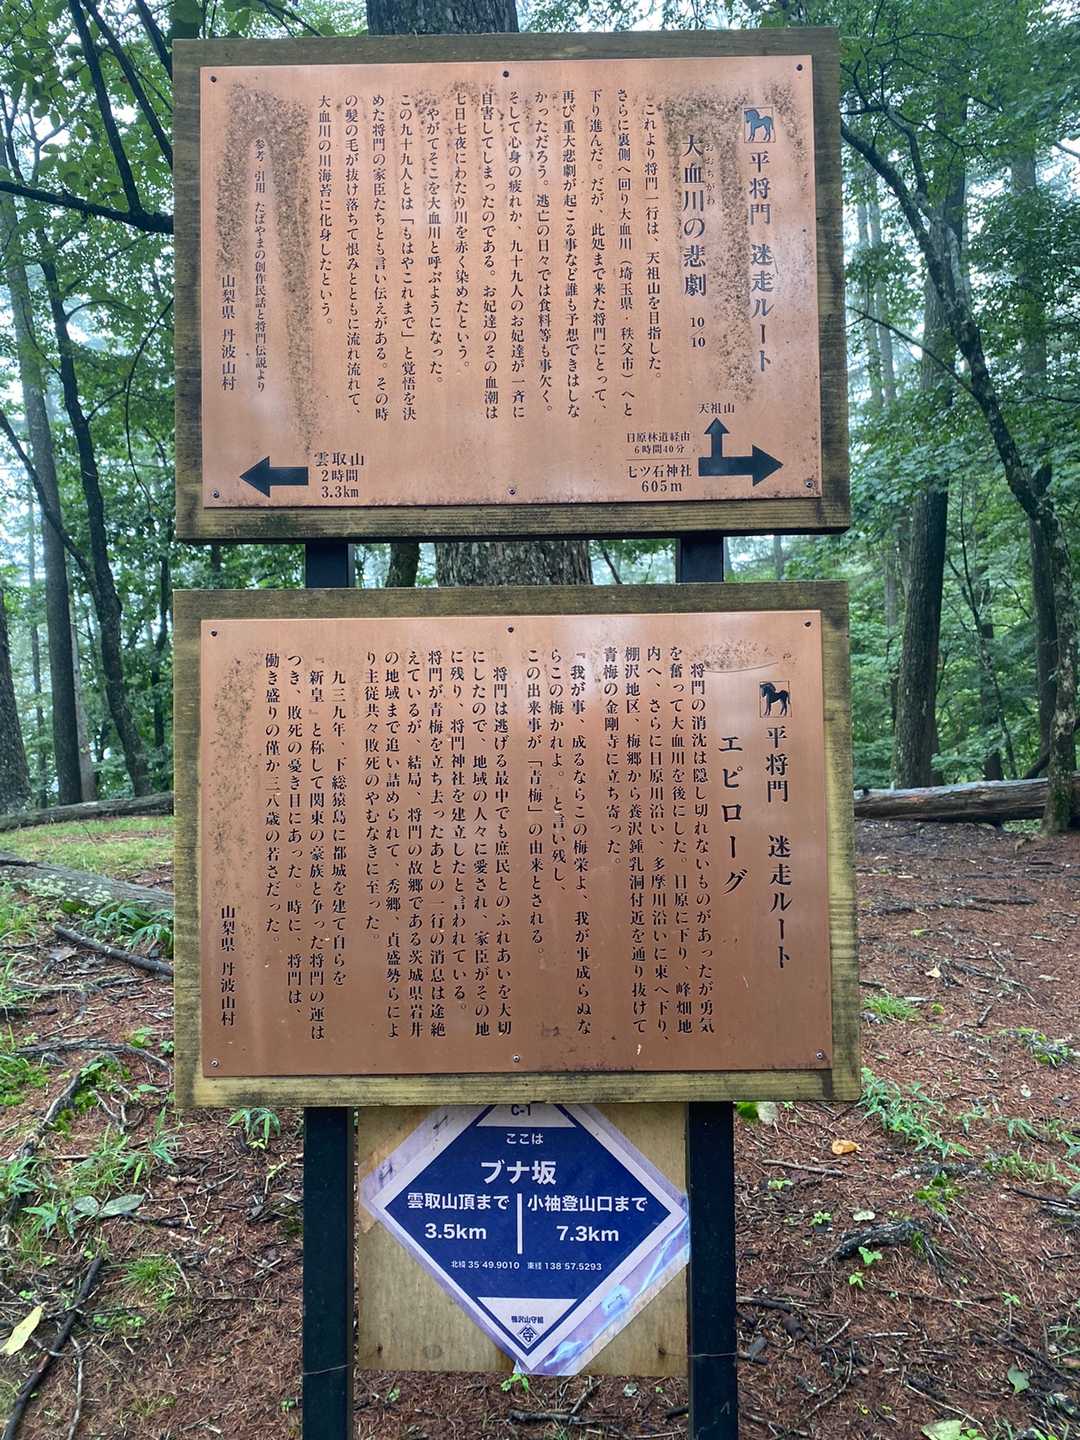 平将門 迷走ルート
おおちがわ
大血川の悲劇 10/10
これより将門一行は、天祖山を目指した。
さらに裏側へ回り大血川（埼玉県・秩父市）へと
下り進んだ。だが、此処まで来た将門にとって、
再び重大悲劇が起こる事など誰も予想できはしな
かっただろう。逃亡の日々では食料等も事欠く。
そして心身の疲れか、九十九人のお妃達が一斉に
自害してしまったのである。お妃達のその血潮は
七日七夜にわたり川を赤く染めたという。
やがてそこを大血川と呼ぶようになった。
この九十九人とは「もはやこれまで」と覚悟を決
めた将門の家臣たちとも言い伝えがある。その時
の髪の毛が抜け落ちて恨みとともに流れ流れて、
大血川の川海苔に化身したという。
参考 引用 たばやまの創作民話と将門伝説より
山梨県 丹波山村
天祖山
日原林道経由
6時間40分
七ツ石神社
605m
雲取山
2時間
3.3km
平将門 迷走ルート
エピローグ
将門の消沈は隠し切れないものがあったが勇気
を奮って大血川を後にした。日原に下り、峰畑地
内へ、さらに日原川沿い、多摩川沿いに東へ下り、
棚沢地区、梅郷から養沢鍾乳洞付近を通り抜けて
青梅の金剛寺に立ち寄った。
『我が事、成るならこの梅栄よ、我が事成らぬな
らこの梅かれよ。と言い残し、
この出来事が「青梅」の由来とされる。
将門は逃げる最中でも庶民とのふれあいを大切
にしたので、地域の人々に愛され、家臣がその地
に残り、将門神社を建立したと言われている。
将門が青梅を立ち去ったあとの一行の消息は途絶
えているが、結局、将門の故郷である茨城県岩井
の地域まで追い詰められて、秀郷、貞盛勢らによ
り主従共々敗死のやむなきに至った。
九三九年、下総猿島に都城を建て自らを
『新皇』と称して関東の豪族と争った将門の運は
つき、敗死の憂き目にあった。時に、将門は、
働き盛りの僅か三八歳の若さだった。
山梨県 丹波山村
C-1
ここは
ブナ坂
雲取山頂まで
3.5km
小袖登山口まで
7.3km
北緯 35 49.9010 東経 138 57.5293
鴨沢山守組